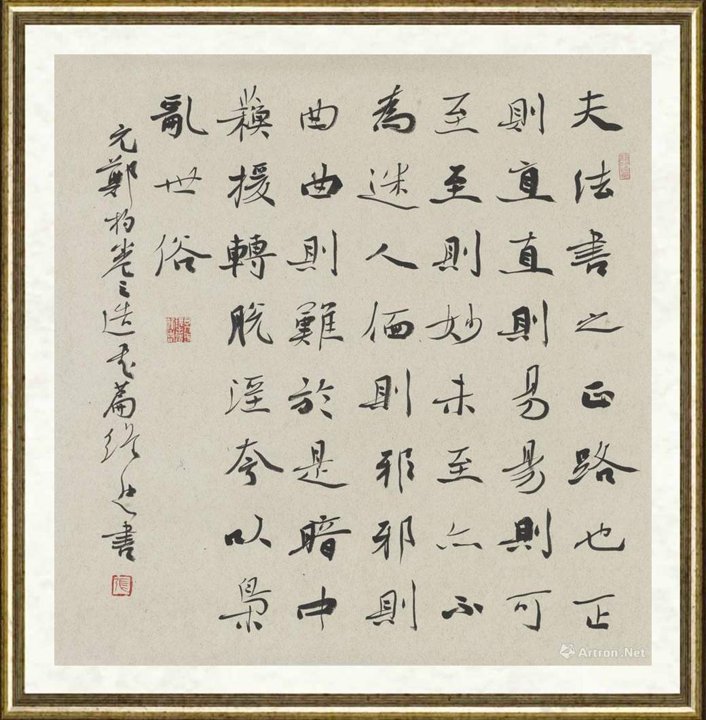 夫法書之正路也正
則直直則易易則可
至至則妙未至亦不
為迷人偭則邪邪則
曲曲則難於是暗中
糢援轉脫淫夸以梟
亂世俗
元鄭杓卷之造書篇書
Artron.Net